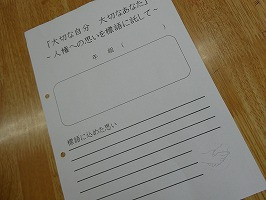 「大切な自分　大切なあなた」
～人権への思いを標語に託して～
年　組（　　　　　　　）
標語に込めた思い